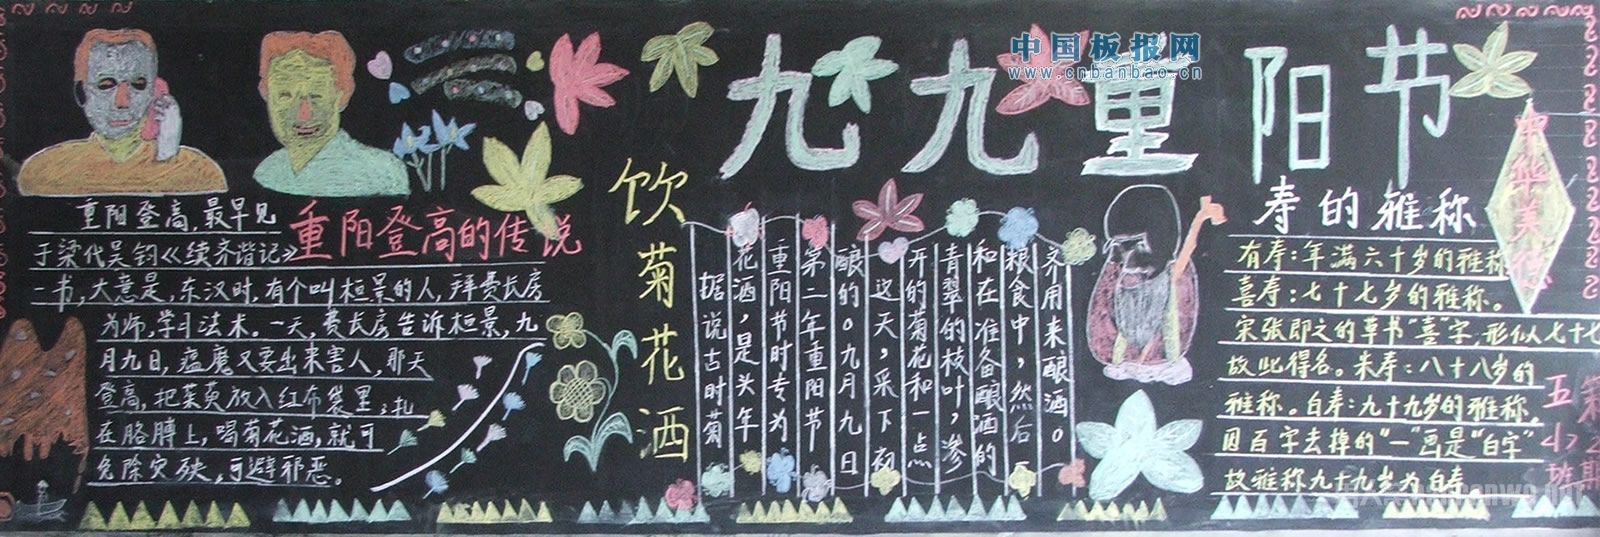 中国板报网
www.cnbanbao.cn
九九重阳节
重阳登高的传说
重阳登高,最早见
于梁代吴钧《续齐谐记》
一书,大意是,东汉时,有个叫桓景的人,拜费长房
为师,学习法术。一天,费长房告诉桓景,九
月九日,瘟魔又要出来害人,那天
登高,把茱萸放入红布袋里,扎
在胳膊上,喝菊花酒,就可
免除灾殃,可避邪恶。
饮菊花酒
据说古时菊
花酒,是头年
重阳节时专为
第二年重阳节
酿的。九月九日
这天,采下初
开的菊花和一点
青翠的枝叶,渗
和在准备酿酒的
粮食中,然后一
齐用来酿酒。
寿的雅称
有寿:年满六十岁的雅称
喜寿:七十七岁的雅称。
宋张即之的草书“喜”字,形似七十七
故此得名。朱寿:八十八岁的
雅称。白寿:九十九岁的雅称。
因百字去掉的“一”画是“白字”
故雅称九十九岁为白寿。
中华美德
五〈2〉班
第2期